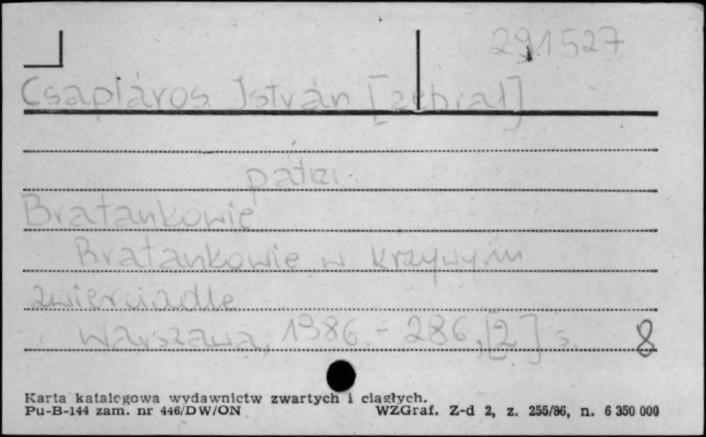 291527
Csapláros István [zebrał]
patrz:
Bratankowie
Bratankowie w krzywym
zwierciadle
Warszawa, 1986. - 286, [2] s. 8
Karta katalogowa wydawnictw zwartych i ciągłych.
Pu-B-144 zam. nr 446/DW/ON WZGraf. Z-d 2, z. 255/86, n. 6 350 000